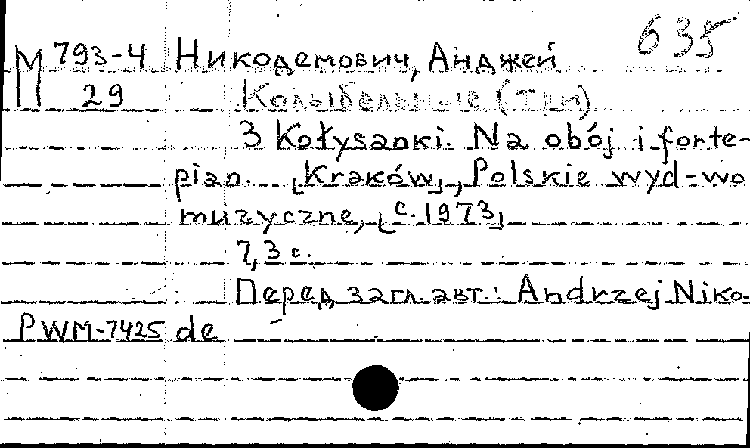 635
М 793-4 Никодемович, Анджей
29 Колыбельные (три)
3 Kołysanki. Na obój i forte-
pian. [Kraków], Polskie wyd-wo
muzyczne, [c. 1973]
7, 3 с.
Перед загл. авт.: Andrzej Niko-
PWM-7425 de